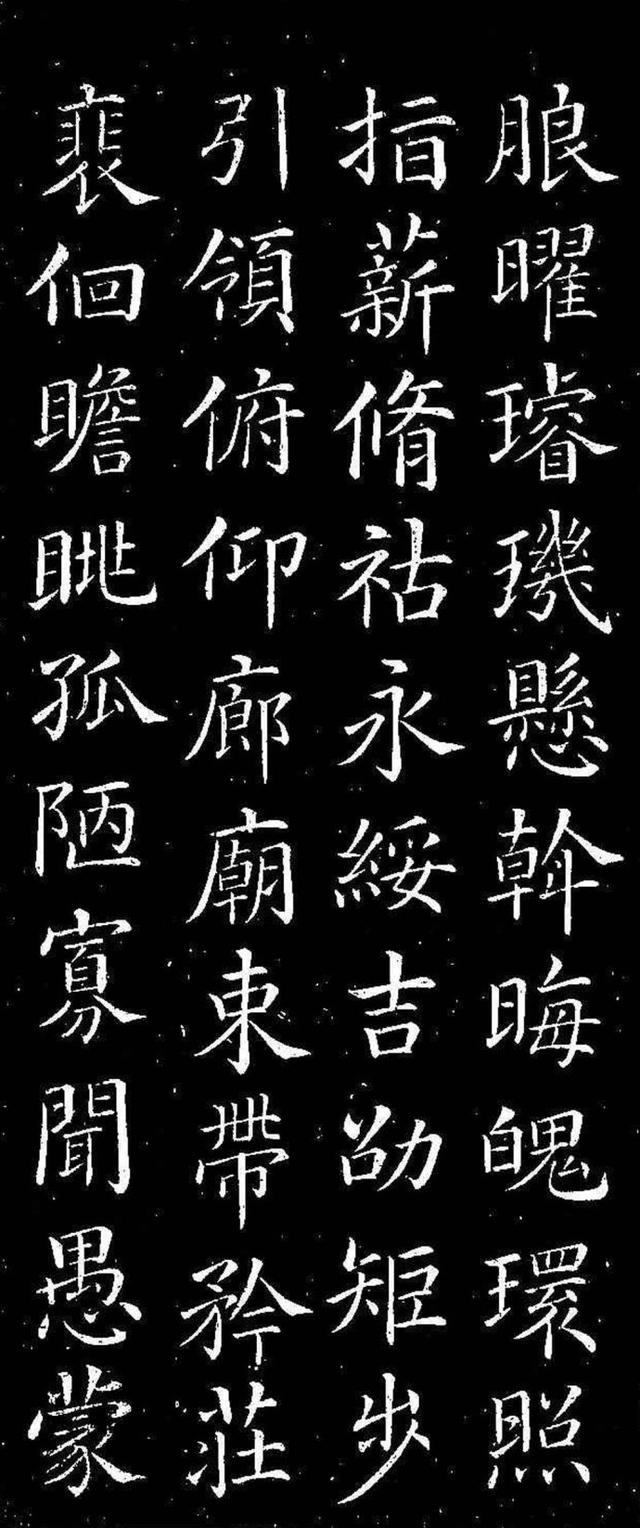 朖曜璿璣懸斡晦魄環照
指薪脩祜永綏吉劭矩步
引領俯仰廊廟束帶矜莊
裴佪瞻眺孤陋寡聞愚蒙